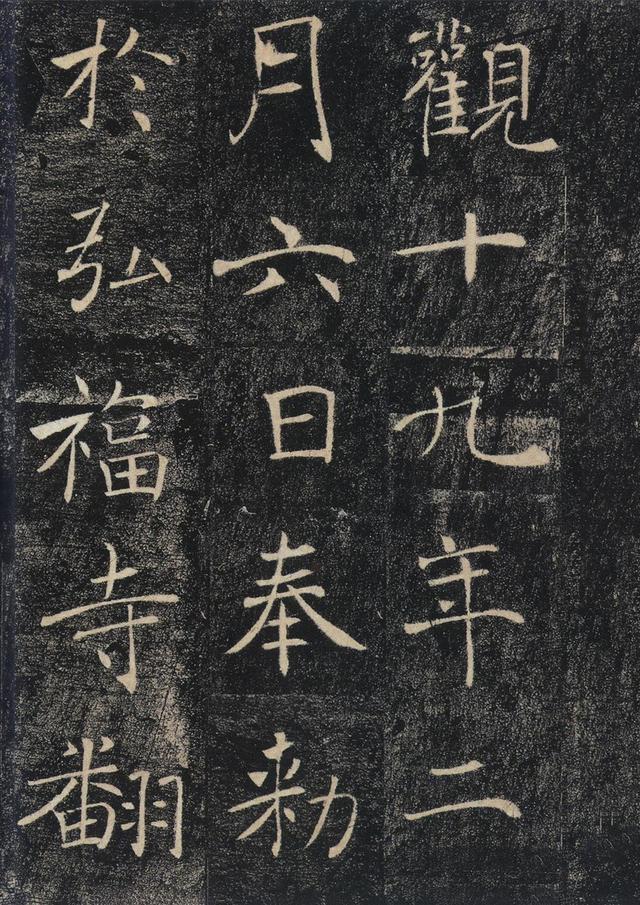 觀十九年二
月六日奉勅
於弘福寺翻